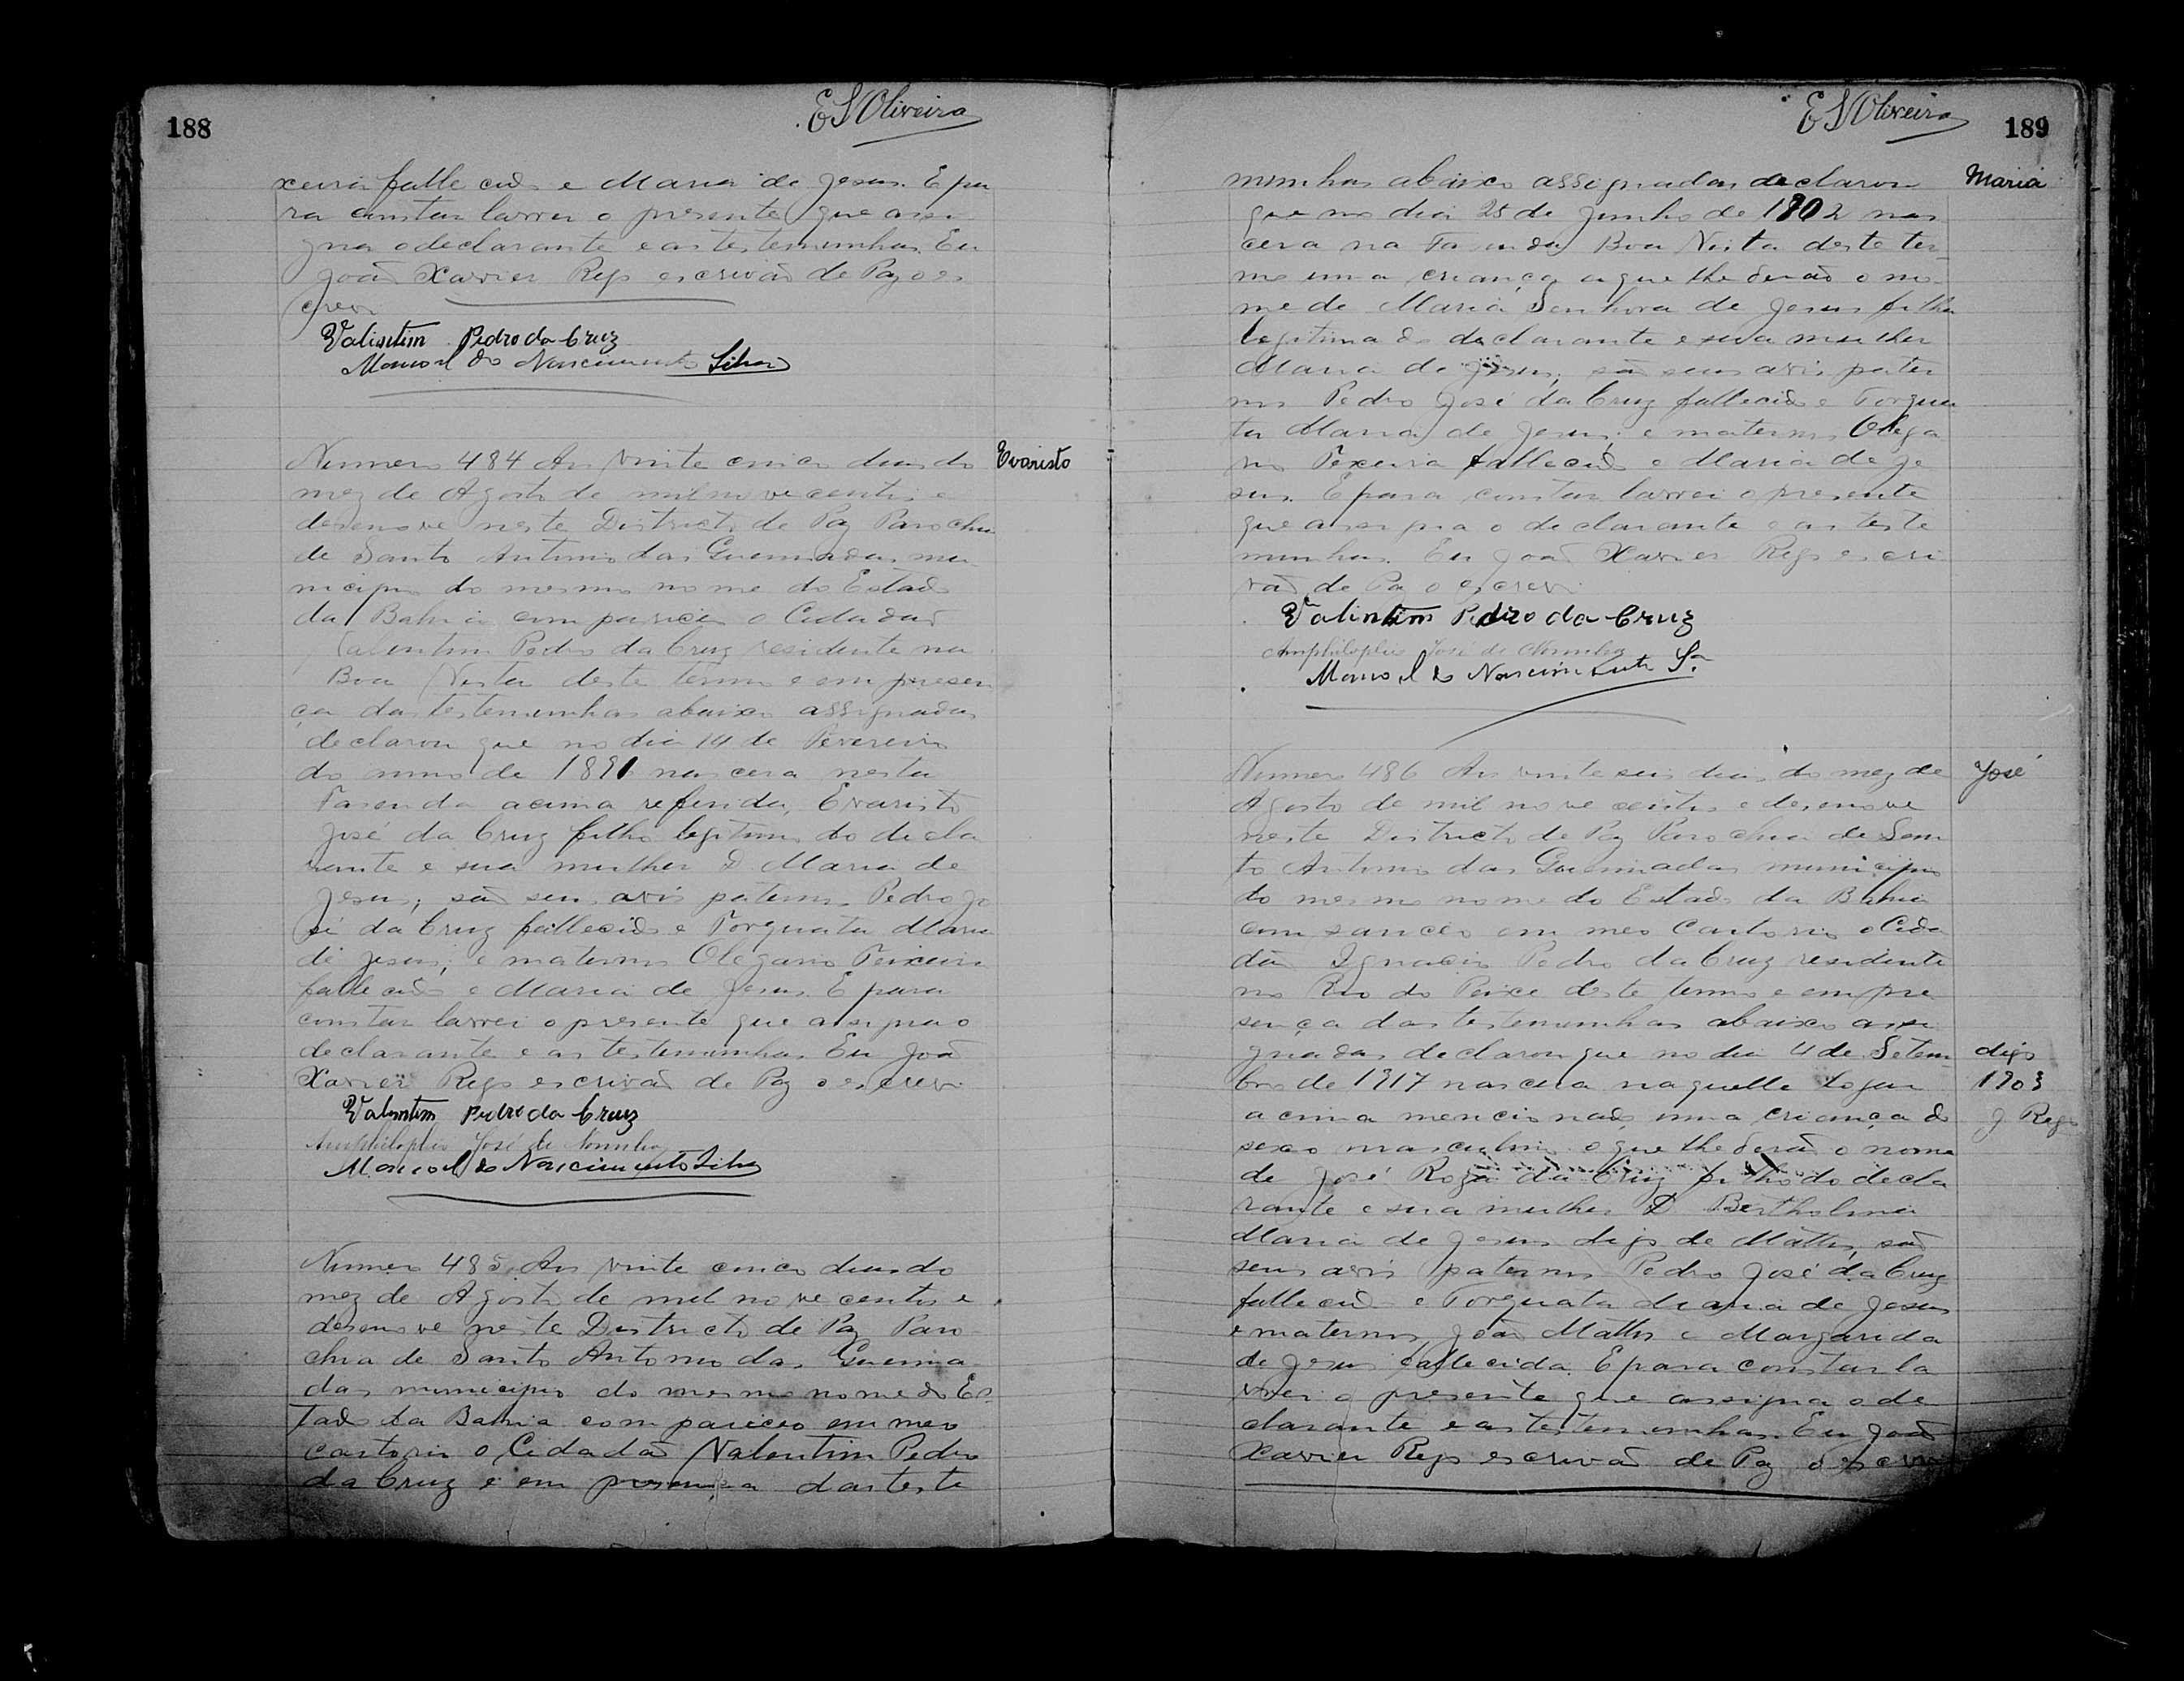 188
E S Oliveira
xeira fallecido e Maria de Jesus. E pa
ra constar lavrei o presente que assi
gna o declarante e as testemunhas. Eu
João Xavier Rego escrivão de Paz o es
crevi
Valintim Pedro da Cruz
Manoel do Nascimento Silva
Numero 484 Aos vinte cinco dias do
Evaristo
mez de Agosto de mil nove centos e
desenove neste Districto de Paz Parochia
de Santo Antonio das Queimadas mu
nicipio do mesmo nome do Estado
da Bahia compareceu o Cidadão
Valentim Pedro da Cruz residente na
Boa Vista deste termo e em presen
ça das testemunhas abaixo assignadas
declarou que no dia 14 de Fevereiro
do anno de 1891 nascera nesta
Fasenda acima referida, Evaristo
José da Cruz filho legitimo do decla
rante e sua mulher D. Maria de
Jesus; são seus avós paternos Pedro Jo
sé da Cruz fallecido e Torquata Maria
de Jesus; e maternos Olegario Teixeira
fallecido e Maria de Jesus. E para
constar lavrei o presente que assigna o
declarante e as testemunhas. Eu João
Xavier Rego escrivão de Paz o escrevi
Valintim Pedro da Cruz
Amphilophio José de Noronha
Manoel do Nascimento Silva
Numero 485 Aos vinte cinco dias do
mez de Agosto de mil nove centos e
desenove neste Districto de Paz Paro
chia de Santo Antonio das Queima
das municipio do mesmo nome do Es
tado da Bahia compareceo em meo
cartorio o Cidadão Valentim Pedro
da Cruz e em presença das teste
E S Oliveira
189
munhas abaixo assignadas declarou
Maria
que no dia 25 de Junho de 1902 nas
cera na Fasenda Boa Vista deste ter
mo uma criança a que lhe derão o no
me de Maria Senhora de Jesus filha
legitima do declarante e sua mulher
Maria de Jesus; são seus avós pater
nos Pedro José da Cruz fallecido e Torqua
ta Maria de Jesus; e maternos Olega
rio Texeira fallecido e Maria de Je
sus. E para constar lavrei o presente
que assigna o declarante e as teste
munhas. Eu João Xavier Rego escri
vão de Paz o escrevi
Valintim Pedro da Cruz
Amphilophio José de Noronha
Manoel do Nascimento Sa
Numero 486 Aos vinte seis dias do mez de
José
Agosto de mil nove centos e desenove
neste Districto de Paz Parochia de San
to Antonio das Queimadas municipio
do mesmo nome do Estado da Bahia
compareceo em meo Cartorio o Cida
dão Ignacio Pedro da Cruz residente
no Rio do Peixe deste termo e em pre
sença das testemunhas abaixo assi
gnadas declarou que no dia 4 de Setem
digo
bro de 1917 nascera naquelle logar
1903
acima mencionado uma criança do
J Rego
sexo masculino o que lhe derão o nome
de José Roza da Cruz filho do decla
rante e sua mulher D. Bertholina
Maria de Jesus digo de Mattos, são
seus avós paternos Pedro José da Cruz
fallecido e Torquata Maria de Jesus
e maternos João Mattos e Margarida
de Jesus fallecida. E para constar la
vrei o presente que assigna o de
clarante e as testemunhas. Eu João
Xavier Rego escrivão de Paz o escrevi